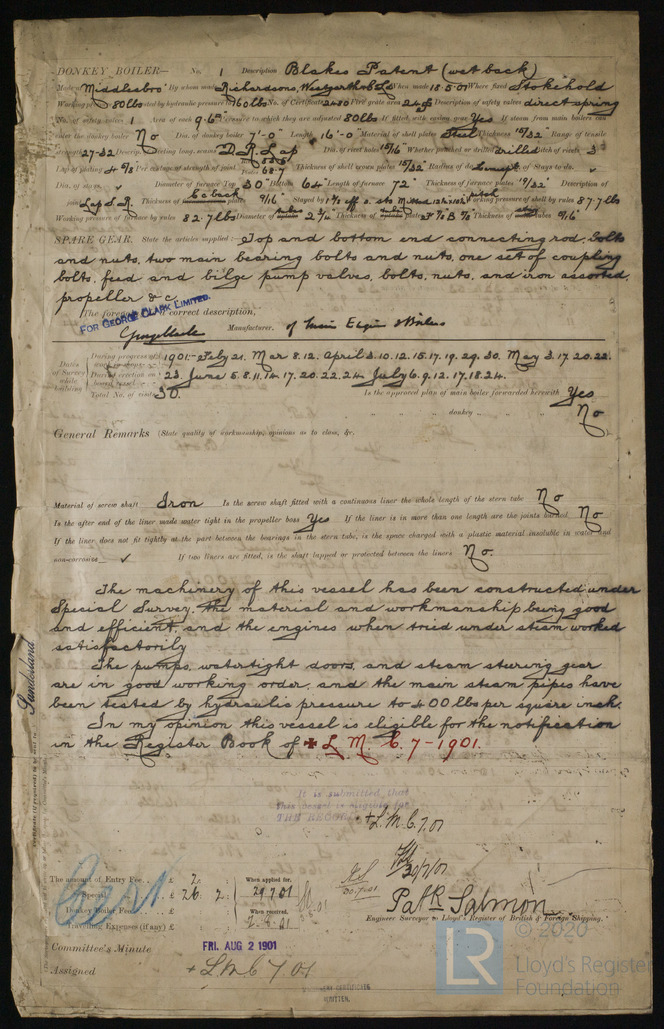 DONKEY BOILER— No. 1 Description Blakes Patent (wet back)
Made at Middlesbro' By whom made Richardsons, Westgarth & Co Ld When made 15.5.01 Where fixed Stokehold
Working pressure 80lbs tested by hydraulic pressure to 160lbs No. of Certificate Fire grate area Description of safety valves direct spring
No. of safety valves 1 Area of each 9.6 Pressure to which they are adjusted 80lbs If fitted with easing gear Yes If steam from main boilers can
enter the donkey boiler No Dia. of donkey boiler 7'-0" Length 16'-0" Material of shell plates Steel Thickness 15/32" Range of tensile
strength 27-32 Descrip. of riveting long. seams D.R. Lap Dia. of rivet holes 15/16" Whether punched or drilled drilled Pitch of rivets 3
Lap of plating 4 5/8" Per centage of strength of joint 68.7 Thickness of shell crown plates 15/32" Radius of do. No. of Stays to do.
Dia. of stays Diameter of furnace Top 30" Bottom 64" Length of furnace 72" Thickness of furnace plates 19/32" Description of
joint Lap S.R. Thickness of 9/16" Stayed by Working pressure of shell by rules 87.7 lbs
Working pressure of furnace by rules 82.7 lbs Diameter of 2 1/4" Thickness of Thickness of 9/16"
SPARE GEAR. State the articles supplied:— Top and bottom end connecting rod, bolts
and nuts, two main bearing bolts and nuts, one set of coupling
bolts, feed and bilge pump valves, bolts, nuts, and iron assorted,
propeller &c
The foregoing is a correct description,
FOR GEORGE CLARK LIMITED.
Manufacturer. of Main Engines & Boilers
Dates of Survey while building
During progress of work in shops 1901:- Feby 21. Mar 8.12. April 3.10.12.15.17.19.29.30. May 3.17.20.22.
During erection on board vessel 23. June 5.8.11.14.17.20.22.24. July 6.9.12.17.18.24.
Total No. of visits 30. Is the approved plan of main boiler forwarded herewith Yes
" " " donkey " " " No
General Remarks (State quality of workmanship, opinions as to class, &c.
Material of screw shaft Iron Is the screw shaft fitted with a continuous liner the whole length of the stern tube No
Is the after end of the liner made water tight in the propeller boss Yes If the liner is in more than one length are the joints burned No
If the liner does not fit tightly at the part between the bearings in the stern tube, is the space charged with a plastic material insoluble in water and
non-corrosive ✓ If two liners are fitted, is the shaft lapped or protected between the liners No.
The machinery of this vessel has been constructed under
Special Survey, the material and workmanship being good
and efficient, and the engines when tried under steam worked
satisfactorily
The pumps, watertight doors, and steam sturing gear
are in good working order, and the main steam pipes have
been tested by hydraulic pressure to 400 lbs per square inch.
In my opinion this vessel is eligible for the notification
in the Register Book of ✠ L.M.C. 7-1901.
Sunderland
It is submitted that
this vessel is eligible for
THE RECORD + L.M.C. 7.01
30/7/01
30.7.01
Cert
The amount of Entry Fee.. £ 2. : : When applied for,
Special .. £ 26 : 2 : 29.7.01
Donkey Boiler Fee .. £ : : When received,
Travelling Expenses (if any) £ : : 2.8.01
Patk Salmon
Engineer Surveyor to Lloyd's Register of British & Foreign Shipping.
Committee's Minute FRI. AUG 2 1901
Assigned + L.M.C. 7.01
MACHINERY CERTIFICATE
WRITTEN.
© 2020
LR
Lloyd's Register
Foundation